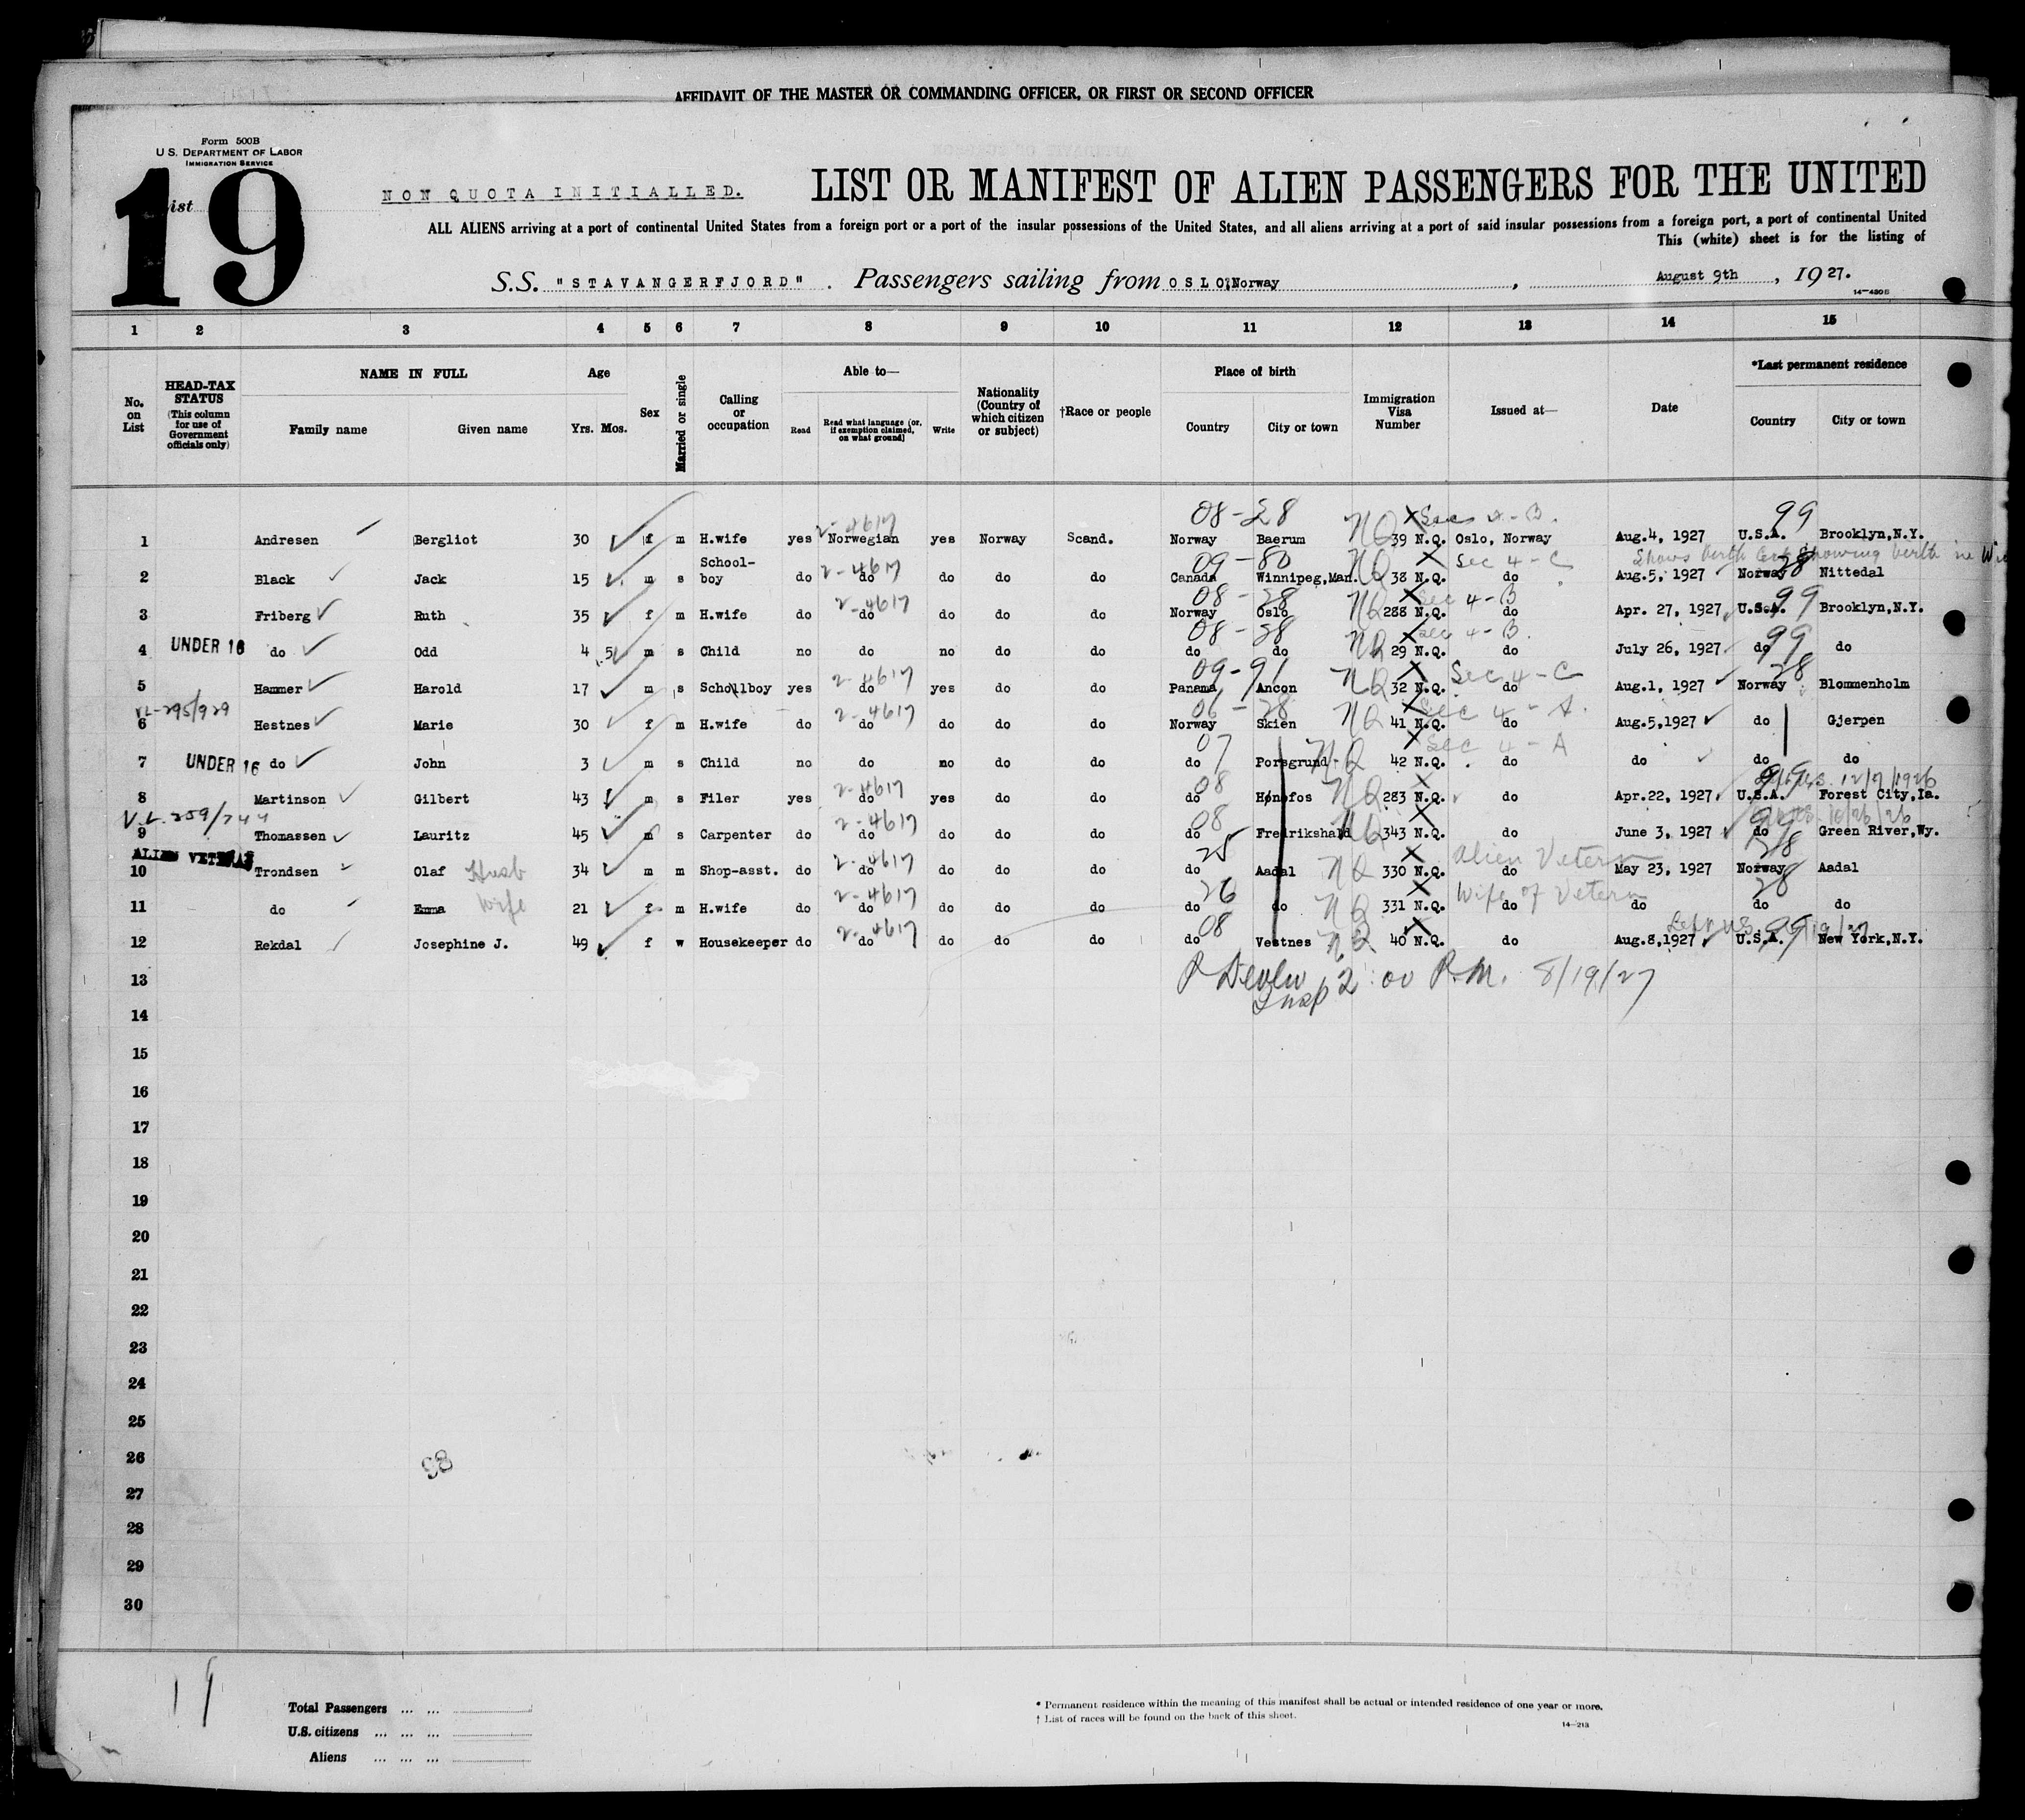 AFFIDAVIT OF THE MASTER OR COMMANDING OFFICER, OR FIRST OR SECOND OFFICER
Form 500B
U.S. DEPARTMENT OF LABOR
IMMIGRATION SERVICE
List 19
NON QUOTA INITIALLED.
LIST OR MANIFEST OF ALIEN PASSENGERS FOR THE UNITED
ALL ALIENS arriving at a port of continental United States from a foreign port or a port of the insular possessions of the United States, and all aliens arriving at a port of said insular possessions from a foreign port, a port of continental United
This (white) sheet is for the listing of
S.S. "STAVANGERFJORD". Passengers sailing from OSLO, Norway, August 9th, 1927.
14-430B
1 2 3 4 5 6 7 8 9 10 11 12 13 14 15
No. on List
HEAD-TAX STATUS (This column for use of Government officials only)
NAME IN FULL
Family name Given name
Age
Yrs. Mos.
Sex
Married or single
Calling or occupation
Able to—
Read
Read what language (or, if exemption claimed, on what ground)
Write
Nationality (Country of which citizen or subject)
†Race or people
Place of birth
Country City or town
Immigration Visa Number
Issued at—
Date
*Last permanent residence
Country City or town
08-28 NQ Sec 4-B. 99
1 Andresen Bergliot 30 f m H.wife yes 2-4617 Norwegian yes Norway Scand. Norway Baerum 39 N.Q. Oslo, Norway Aug.4, 1927 U.S.A. Brooklyn,N.Y.
09-80 NQ Sec 4-C Shows birth Cert showing birth in 28
2 Black Jack 15 m s School-boy do 2-4617 do do do do Canada Winnipeg,Man. 38 N.Q. do Aug.5, 1927 Norway Nittedal
08-28 NQ Sec 4-B 99
3 Friberg Ruth 35 f m H.wife do 2-4617 do do do do Norway Oslo 288 N.Q. do Apr. 27, 1927 U.S.A. Brooklyn,N.Y.
08-28 NQ Sec 4-B. 99
4 UNDER 16 do Odd 4 5 m s Child no do no do do do do 29 N.Q. do July 26, 1927 do do
09-91 NQ Sec 4-C 28
5 Hammer Harold 17 m s Schollboy yes 2-4617 do yes do do Panama Ancon 32 N.Q. do Aug.1, 1927 Norway Blommenholm
295/929 06-28 NQ Sec 4-A.
6 Hestnes Marie 30 f m H.wife do 2-4617 do do do do Norway Skien 41 N.Q. do Aug.5,1927 do Gjerpen
07 NQ Sec 4-A
7 UNDER 16 do John 3 m s Child no do no do do do Porsgrund 42 N.Q. do do do do
08 NQ 99 12/7/1926
8 Martinson Gilbert 43 m s Filer yes 2-4617 do yes do do do Hønefos 283 N.Q. do Apr.22, 1927 U.S.A. Forest City,Ia.
V.L. 259/744 08 NQ 99 10/26/26
9 Thomassen Lauritz 45 m s Carpenter do 2-4617 do do do do do Fredrikshald 343 N.Q. do June 3, 1927 do Green River,Wy.
ALIEN VETERAN 25 NQ Alien Veteran 28
10 Trondsen Olaf Husb 34 m m Shop-asst. do 2-4617 do do do do do Aadal 330 N.Q. do May 23, 1927 Norway Aadal
26 NQ Wife of Veteran 28
11 do Emma Wife 21 f m H.wife do 2-4617 do do do do do do 331 N.Q. do do do do
08 NQ 99
12 Rekdal Josephine J. 49 f w Housekeeper do 2-4617 do do do do do Vestnes 40 N.Q. do Aug.8,1927 U.S.A. New York,N.Y.
13 Insp 2:00 P.M. 8/19/27
14
15
16
17
18
19
20
21
22
23
24
25
26
98
27
28
29
30
19
Total Passengers ... ...
U.S. citizens ... ... ...
Aliens ... ... ...
* Permanent residence within the meaning of this manifest shall be actual or intended residence of one year or more.
† List of races will be found on the back of this sheet.
14-213